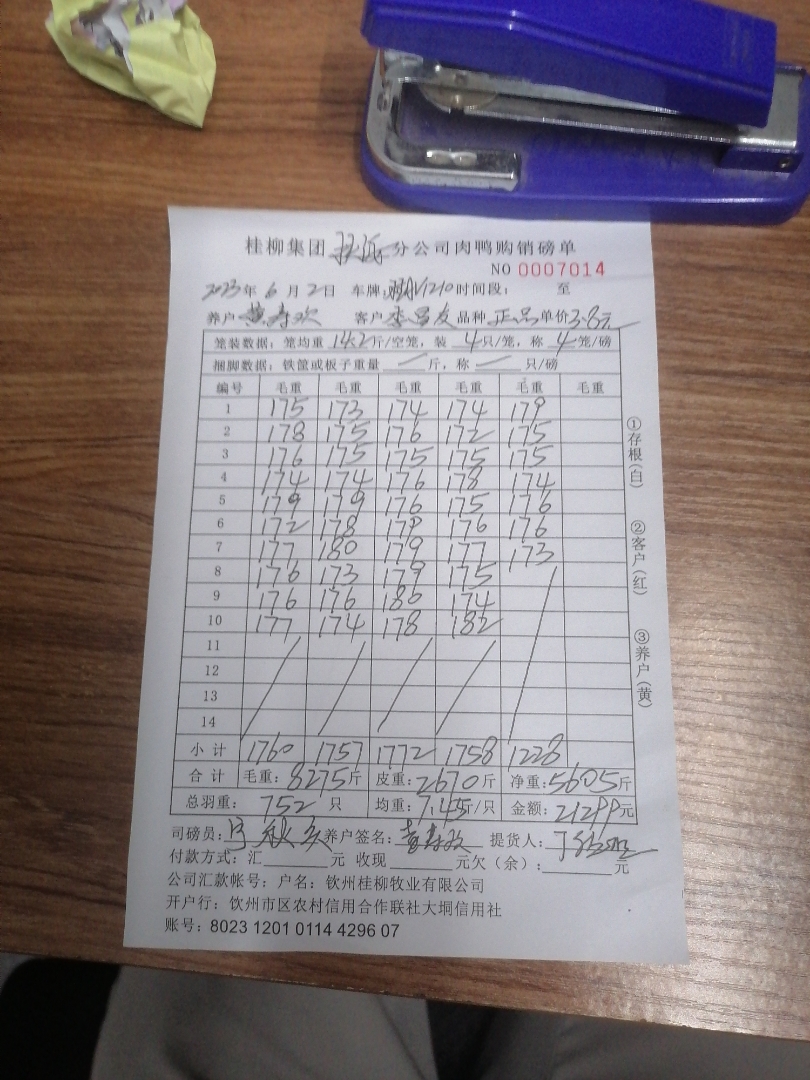 桂柳集团 分公司肉鸭购销磅单
NO 0007014
2023年 6 月 2 日 车牌: 1210 时间段: 至
养户 黄寿欢 客户 李昌友 品种 正品 单价 3.8元
笼装数据: 笼均重 14.2 斤/空笼, 装 4 只/笼, 称 4 笼/磅
捆脚数据: 铁筐或板子重量 / 斤, 称 / 只/磅
编号 毛重 毛重 毛重 毛重 毛重 毛重
1 175 173 174 174 179
2 178 175 176 172 175
3 176 175 175 175 175
4 174 174 176 178 174
5 179 179 176 175 176
6 172 178 179 176 176
7 177 180 179 177 173
8 176 173 179 175
9 176 176 180 174
10 177 174 178 182
11
12
13
14
小计 1760 1757 1772 1758 1228
合计 毛重: 8275斤 皮重: 2670斤 净重: 5605斤
总羽重: 752 只 均重: 7.45斤/只 金额: 21299元
司磅员: 养户签名: 黄寿欢 提货人:
付款方式: 汇 元 收现 元欠(余): 元
公司汇款帐号: 户名: 钦州桂柳牧业有限公司
开户行: 钦州市区农村信用合作联社大垌信用社
账号: 8023 1201 0114 4296 07
①存根(白)
②客户(红)
③养户(黄)